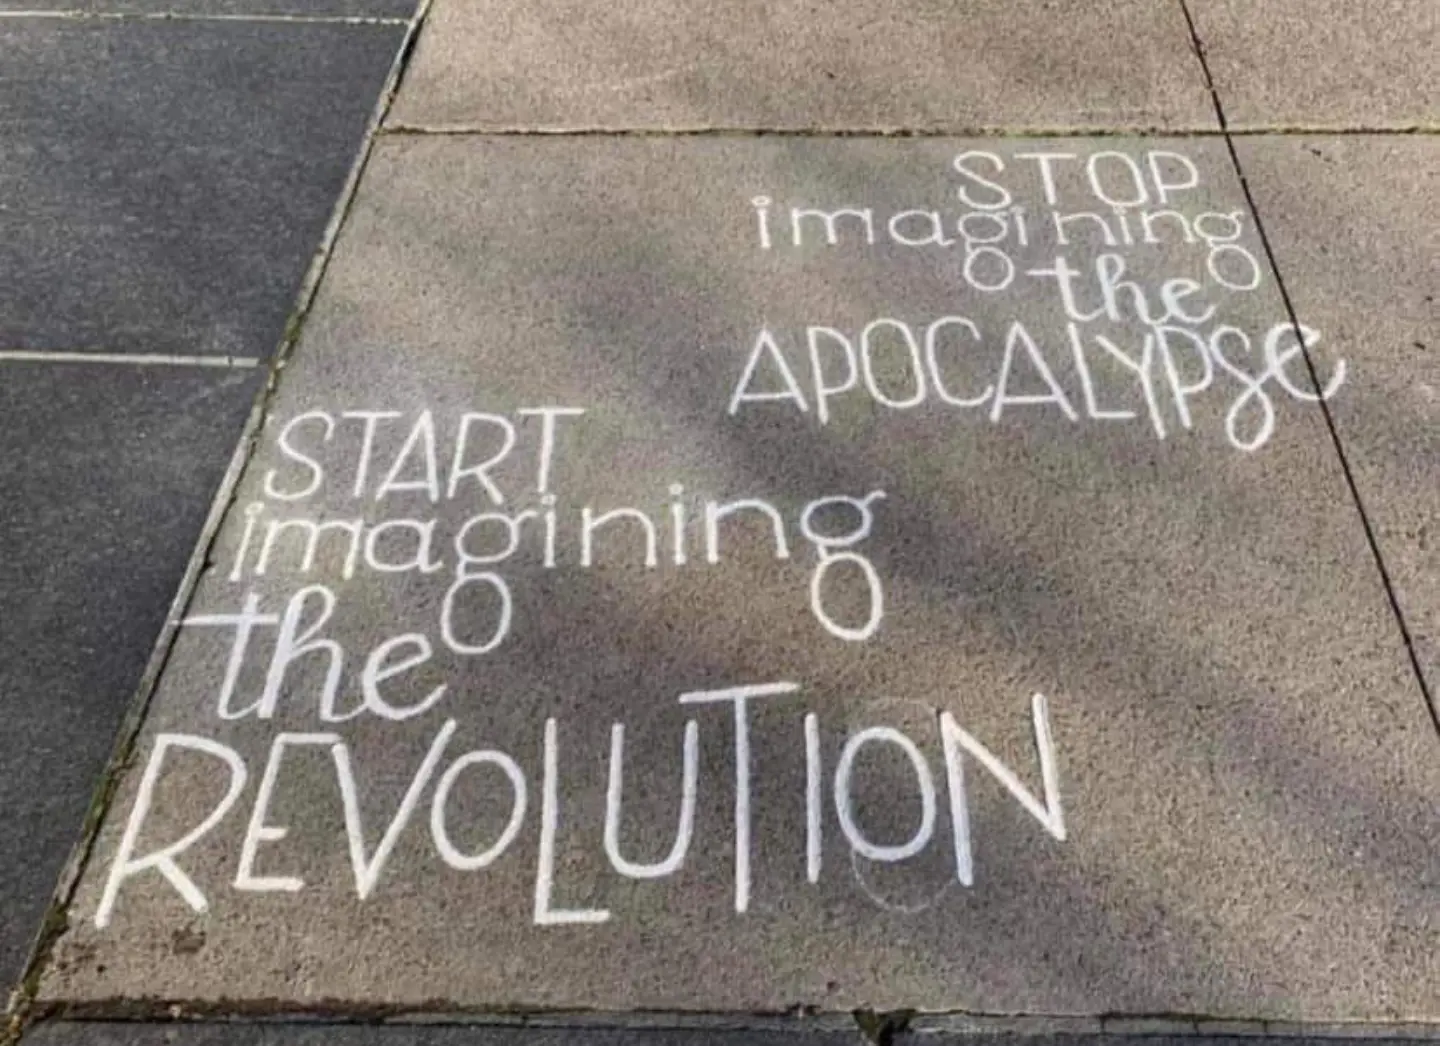 STOP
imagining
the
APOCALYPSE
START
imagining
the
REVOLUTION